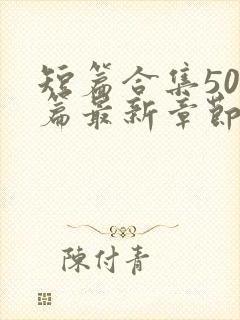 短篇合集50
篇最新章節
陳付青